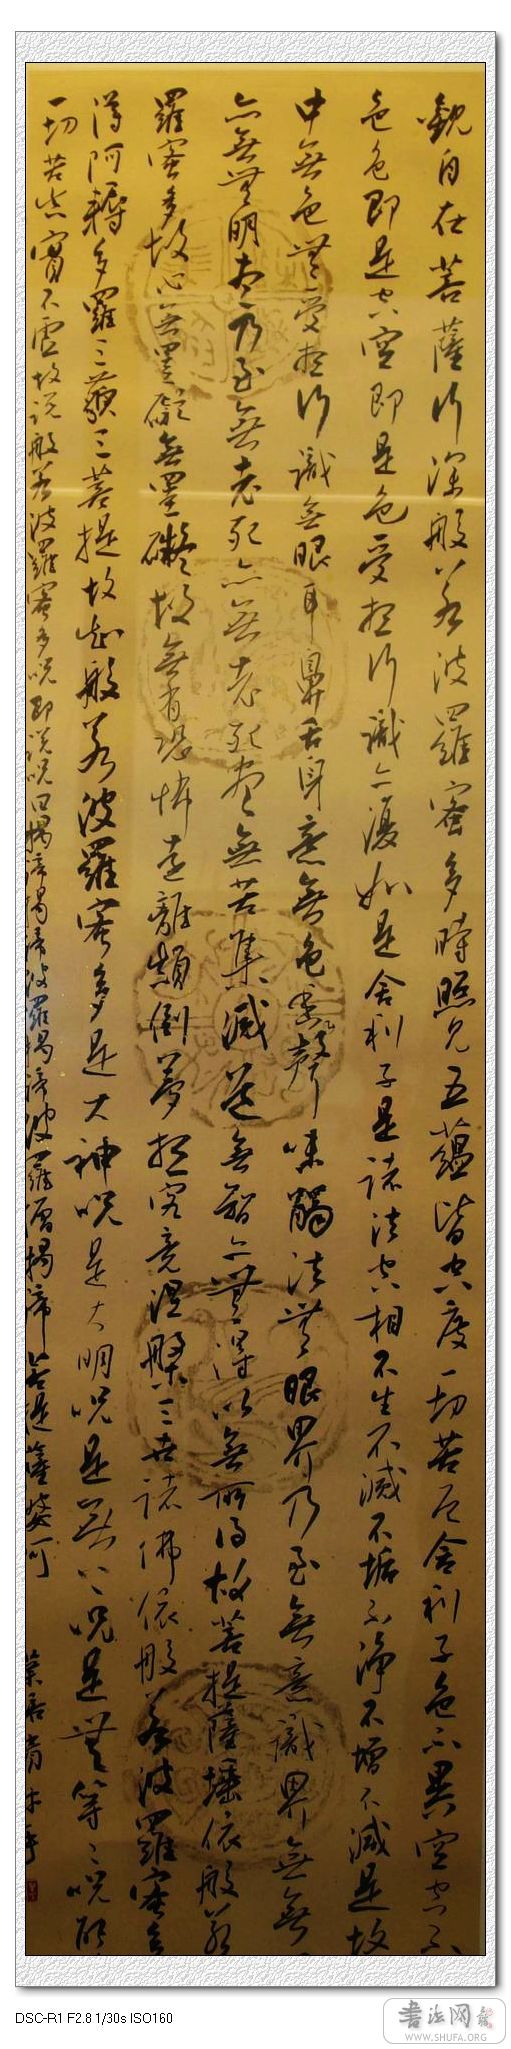 觀自在菩薩行深般若波羅蜜多時照見五蘊皆空度一切苦厄舍利子色不異空空不
色色即是空空即是色受想行識亦復如是舍利子是諸法空相不生不滅不垢不淨不增不減是故
中無色無受想行識無眼耳鼻舌身意無色香聲味觸法無眼界乃至無意識界無無
亦無無明盡乃至無老死亦無老死盡無苦集滅道無智亦無得以無所得故菩提薩埵依般若
羅蜜多故心無罣礙無罣礙故無有恐怖遠離顛倒夢想究竟涅槃三世諸佛依般若波羅蜜多
得阿耨多羅三藐三菩提故知般若波羅蜜多是大神呪是大明呪是無上呪是無等々呪能
一切苦真實不虛故說般若波羅蜜多呪即說呪曰揭諦揭諦波羅揭諦波羅僧揭諦菩提薩婆訶
DSC-R1 F2.8 1/30s ISO160
書法网
WWW.SHUFA.ORG